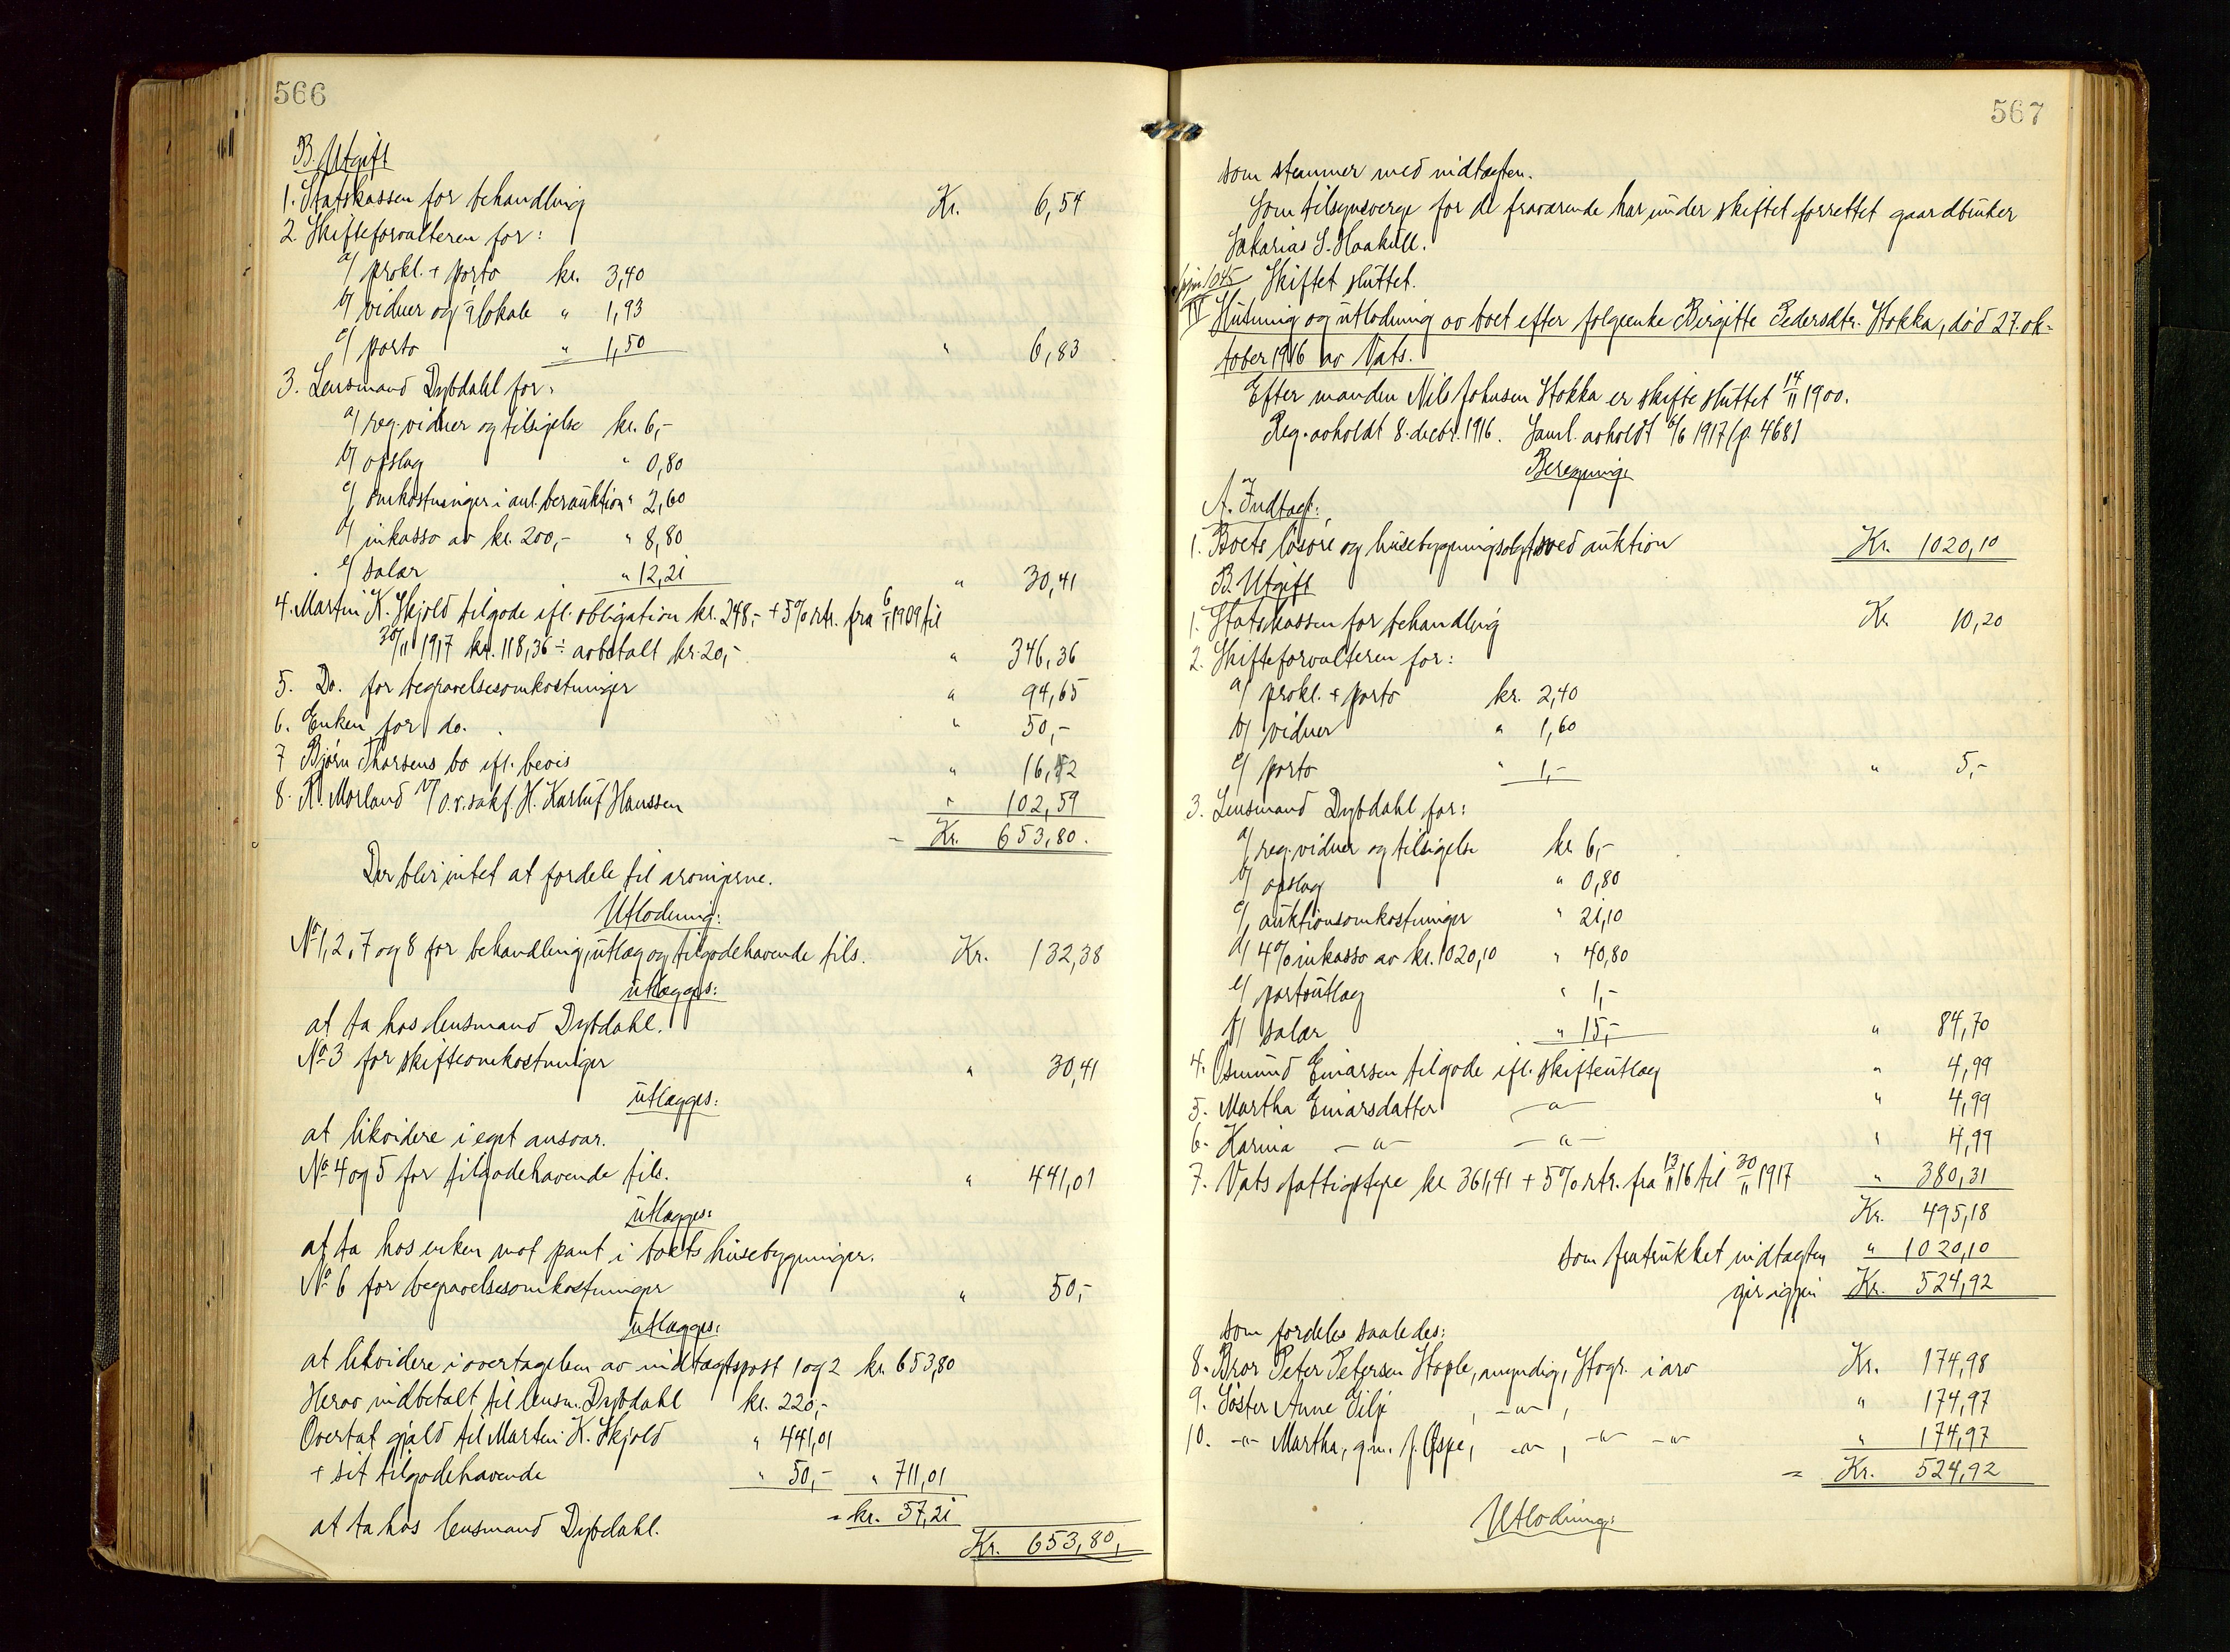 566
B. Utgift
1. Statskassen for behandling Kr. 6,54
2. Skifteforvalteren for:
a/ prokl. + porto kr. 3,40
b/ vidner og lokale " 1,93
c/ porto " 1,50 " 6,83
3. Lensmand Dybdahl for:
a/ reg. vidner og tilsigelse kr. 6,-
b/ opslag " 0,80
c/ omkostninger i anl. berauktion " 2,60
d/ inkasso av kr. 200,- " 8,80
e/ salær " 12,21 " 30,41
4. Martin K. Skjold tilgode ifl. obligation kr. 248,- + 5% rtr. fra 6/11 1909 til
30/11 1917 kr. 118,36 ÷ avbetalt kr. 20,- " 346,36
5. Do. for begravelsesomkostninger " 94,65
6. Enken for do. " 50,-
7 Bjørn Thorsens bo ifl. bevis " 16,42
8. K. Morland v/ o.r.sakf. H. Karluf Hanssen " 102,59
= Kr. 653,80.
Der blir intet at fordele til arvingerne.
Utlodning:
No 1, 2, 7 og 8 for behandling, utlæg og tilgodehavende tils. Kr. 132,38
utlægges:
at ta hos lensmand Dybdahl.
No 3 for skifteomkostninger " 30,41
utlægges:
at likvidere i eget ansvar.
No 4 og 5 for tilgodehavende tils. " 441,01
utlægges:
at ta hos enken mot pant i boets husebygninger.
No 6 for begravelsesomkostninger " 50,-
utlægges:
at likvidere i overtagelsen av indtægtspost 1 og 2 kr. 653,80
Herav indbetalt til lensm. Dybdahl kr. 220,-
Overtat gjæld til Martin K. Skjold " 441,01
+ sit tilgodehavende " 50,- " 711,01
= kr. 57,21
at ta hos lensmand Dybdahl.
Kr. 653,80,
567
som stemmer med indtægten.
Som tilsynsverge for de fraværende har under skiftet forrettet gaardbruker
Sakarias S. Haakull.
Skiftet sluttet.
IV Slutning og utlodning av boet efter følgeenke Birgitte Pedersdtr. Stokka, død 27. ok-
tober 1916 av Vats.
Efter manden Nils Johnsen Stokka er skifte sluttet 14/11 1900.
Reg. avholdt 8. decbr. 1916. Saml. avholdt 6/6 1917 (p. 468)
Beregning:
A. Indtægt:
1. Boets løsøre og husebygning solgt ved auktion Kr. 1020,10
B. Utgift
1. Statskassen for behandling Kr. 10,20
2. Skifteforvalteren for:
a/ prokl. + porto kr. 2,40
b/ vidner " 1,60
c/ porto " 1,- " 5,-
3. Lensmand Dybdahl for:
a/ reg. vidner og tilsigelse kr. 6,-
b/ opslag " 0,80
c/ auktionsomkostninger " 21,10
d/ 4% inkasso av kr. 1020,10 " 40,80
e/ portoutlæg " 1,-
f/ salær " 15,- " 84,70
4. Osmund Einarsen tilgode ifl. skifteutlæg " 4,99
5. Martha Einarsdatter -"- " 4,99
6. Karina -"- -"- " 4,99
7. Vats fattigstyre kr 361,41 + 5% rtr. fra 13/11 16 til 30/11 1917 " 380,31
Kr. 495,18
som fratrukket indtægten " 1020,10
gir igjen Kr. 524,92
som fordeles saaledes:
8. Bror Peter Petersen Hople, myndig, Skogr. i arv Kr. 174,98
9. Søster Anne Silje , -"- , " 174,97
10. -"- Martha, gm. f. Espe, -"- , -"- -"- " 174,97
= Kr. 524,92
Utlodning: